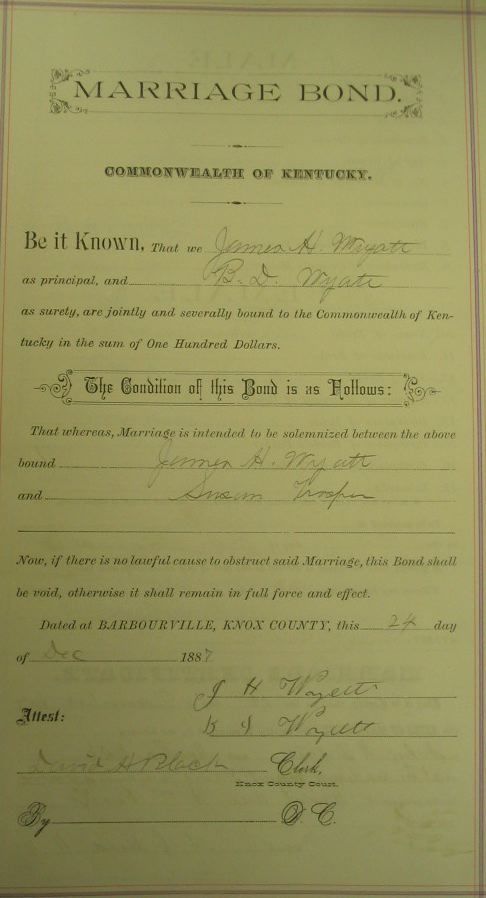 MARRIAGE BOND.
COMMONWEALTH OF KENTUCKY.
Be it Known, That we James H. Wyatt
as principal, and B. D. Wyatt
as surety, are jointly and severally bound to the Commonwealth of Ken-
tucky in the sum of One Hundred Dollars.
The Condition of this Bond is as Follows:
That whereas, Marriage is intended to be solemnized between the above
bound James H. Wyatt
and Susan Trosper
Now, if there is no lawful cause to obstruct said Marriage, this Bond shall
be void, otherwise it shall remain in full force and effect.
Dated at BARBOURVILLE, KNOX COUNTY, this 24 day
of Dec 1887
J H Wyett
Attest:
Wyett
David H Black Clerk,
Knox County Court.
By D. C.